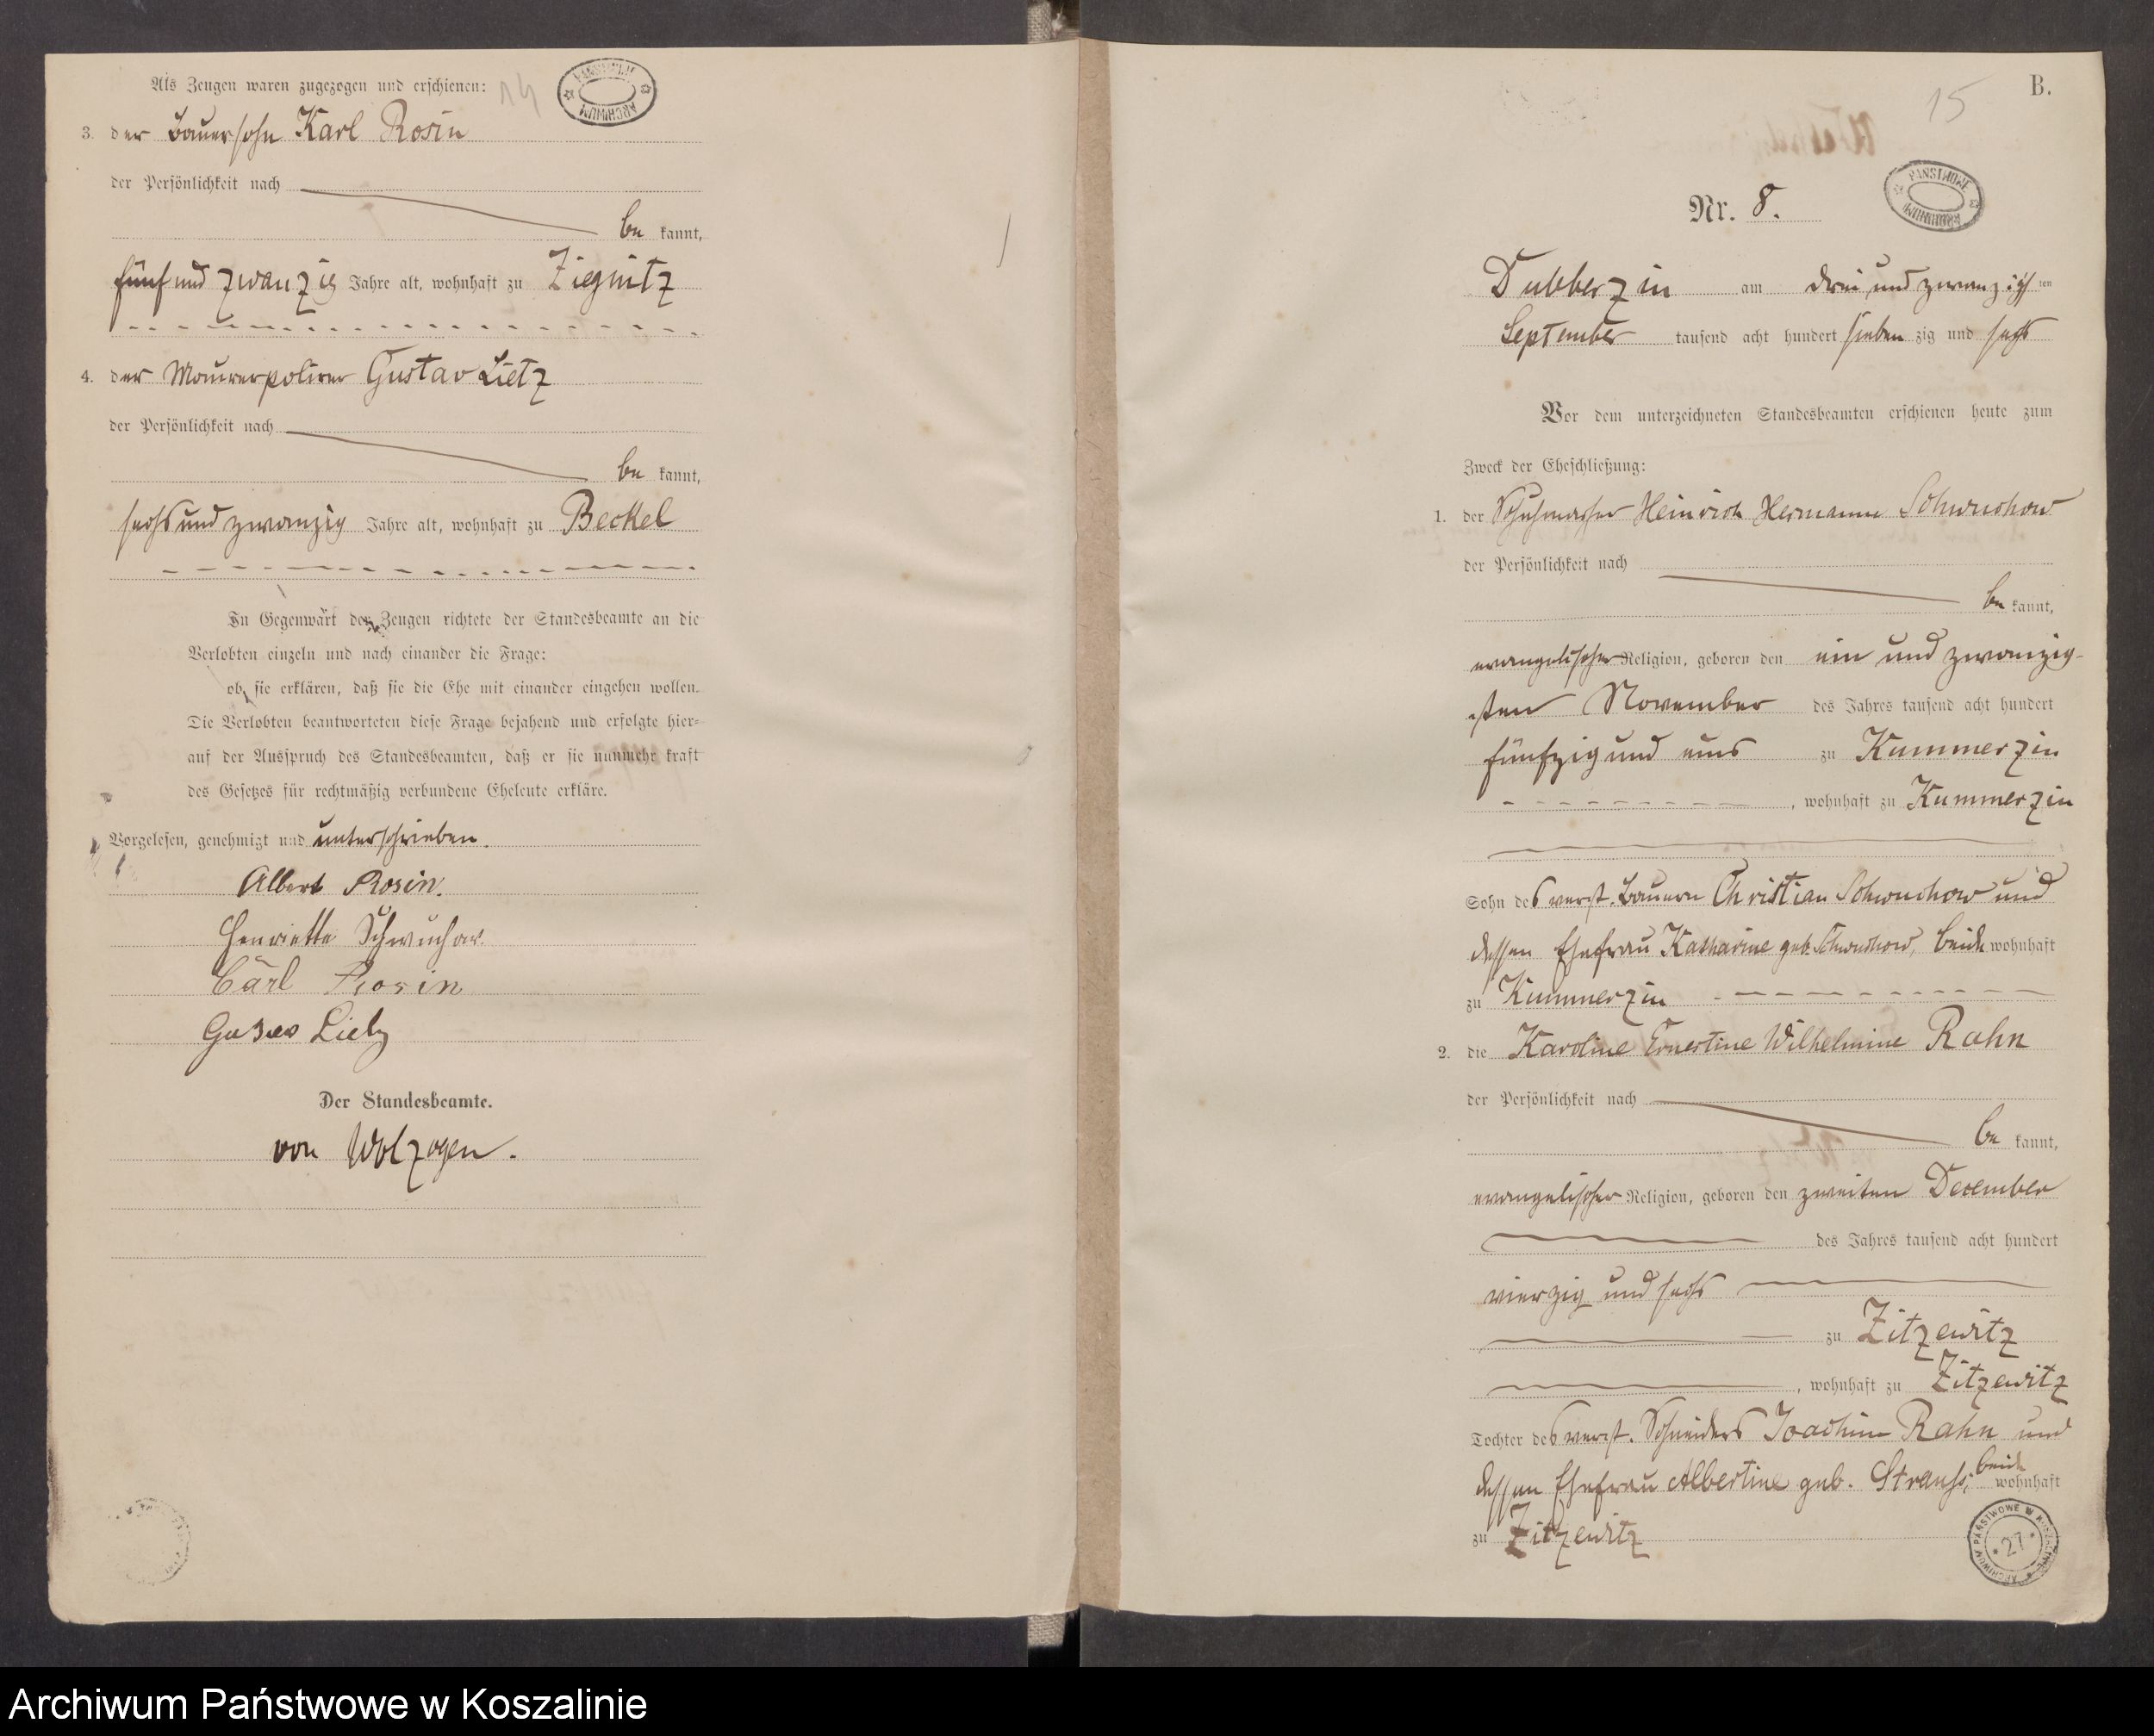 Als Zeugen waren zugezogen und erschienen:
14
PAŃSTWOWE ARCHIWUM
3. der Bauersohn Karl Rosin
der Persönlichkeit nach
be kannt,
fünf und zwanzig Jahre alt, wohnhaft zu Ziegnitz
4. der Maurerpolirer Gustav Lietz
der Persönlichkeit nach
be kannt,
sechs und zwanzig Jahre alt, wohnhaft zu Beckel
In Gegenwart der Zeugen richtete der Standesbeamte an die
Verlobten einzeln und nach einander die Frage:
ob sie erklären, daß sie die Ehe mit einander eingehen wollen.
Die Verlobten beantworteten diese Frage bejahend und erfolgte hier-
auf der Ausspruch des Standesbeamten, daß er sie nunmehr kraft
des Gesetzes für rechtmäßig verbundene Eheleute erkläre.
Vorgelesen, genehmigt und unterschrieben.
Albert Rosin.
Henriette Schwuchow.
Carl Rosin
Gustav Lietz
Der Standesbeamte.
von Wolzogen.
B.
15
Nr. 8.
PAŃSTWOWE ARCHIWUM
Dubberzin am drei und zwanzigsten
September tausend acht hundert sieben zig und sechs
Vor dem unterzeichneten Standesbeamten erschienen heute zum
Zweck der Eheschließung:
1. der Schuhmacher Heinrich Hermann Schwuchow
der Persönlichkeit nach
be kannt,
evangelischer Religion, geboren den ein und zwanzig-
sten November des Jahres tausend acht hundert
fünfzig und eins zu Kummerzin
, wohnhaft zu Kummerzin
Sohn des verst. Bauern Christian Schwuchow und
dessen Ehefrau Katharine geb. Schwuchow, beide wohnhaft
zu Kummerzin
2. die Karoline Ernestine Wilhelmine Rahn
der Persönlichkeit nach
be kannt,
evangelischer Religion, geboren den zweiten December
des Jahres tausend acht hundert
vierzig und sechs
zu Zitzewitz
, wohnhaft zu Zitzewitz
Tochter des verst. Schneiders Joachim Rahn und
dessen Ehefrau Albertine geb. Strauss, beide wohnhaft
zu Zitzewitz
ARCHIWUM PAŃSTWOWE W KOSZALINIE
27
Archiwum Państwowe w Koszalinie